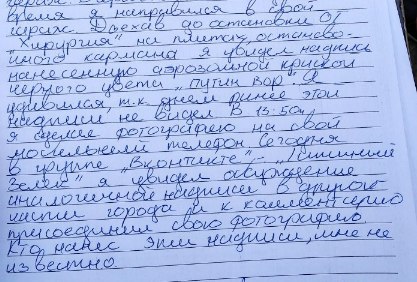 время я направился в свой
гараж. Доехав до остановки О/
„Хирургия" на плитах остано-
ного кармана я увидел надпись
нанесенную аэрозольной краской
черного цвета „Путин вор". Я
удивился, т.к. днем ранее этой
надписи не видел. В 15:50
я сделал фотографию на свой
мобильный телефон. Сегодня
в группе „Вконтакте" – 
Зелен" я увидел обсуждение
аналогичной надписи в другой
части города и к комментарию
присоединил свою фотографию.
Кто нанес эти надписи, мне не
известно.